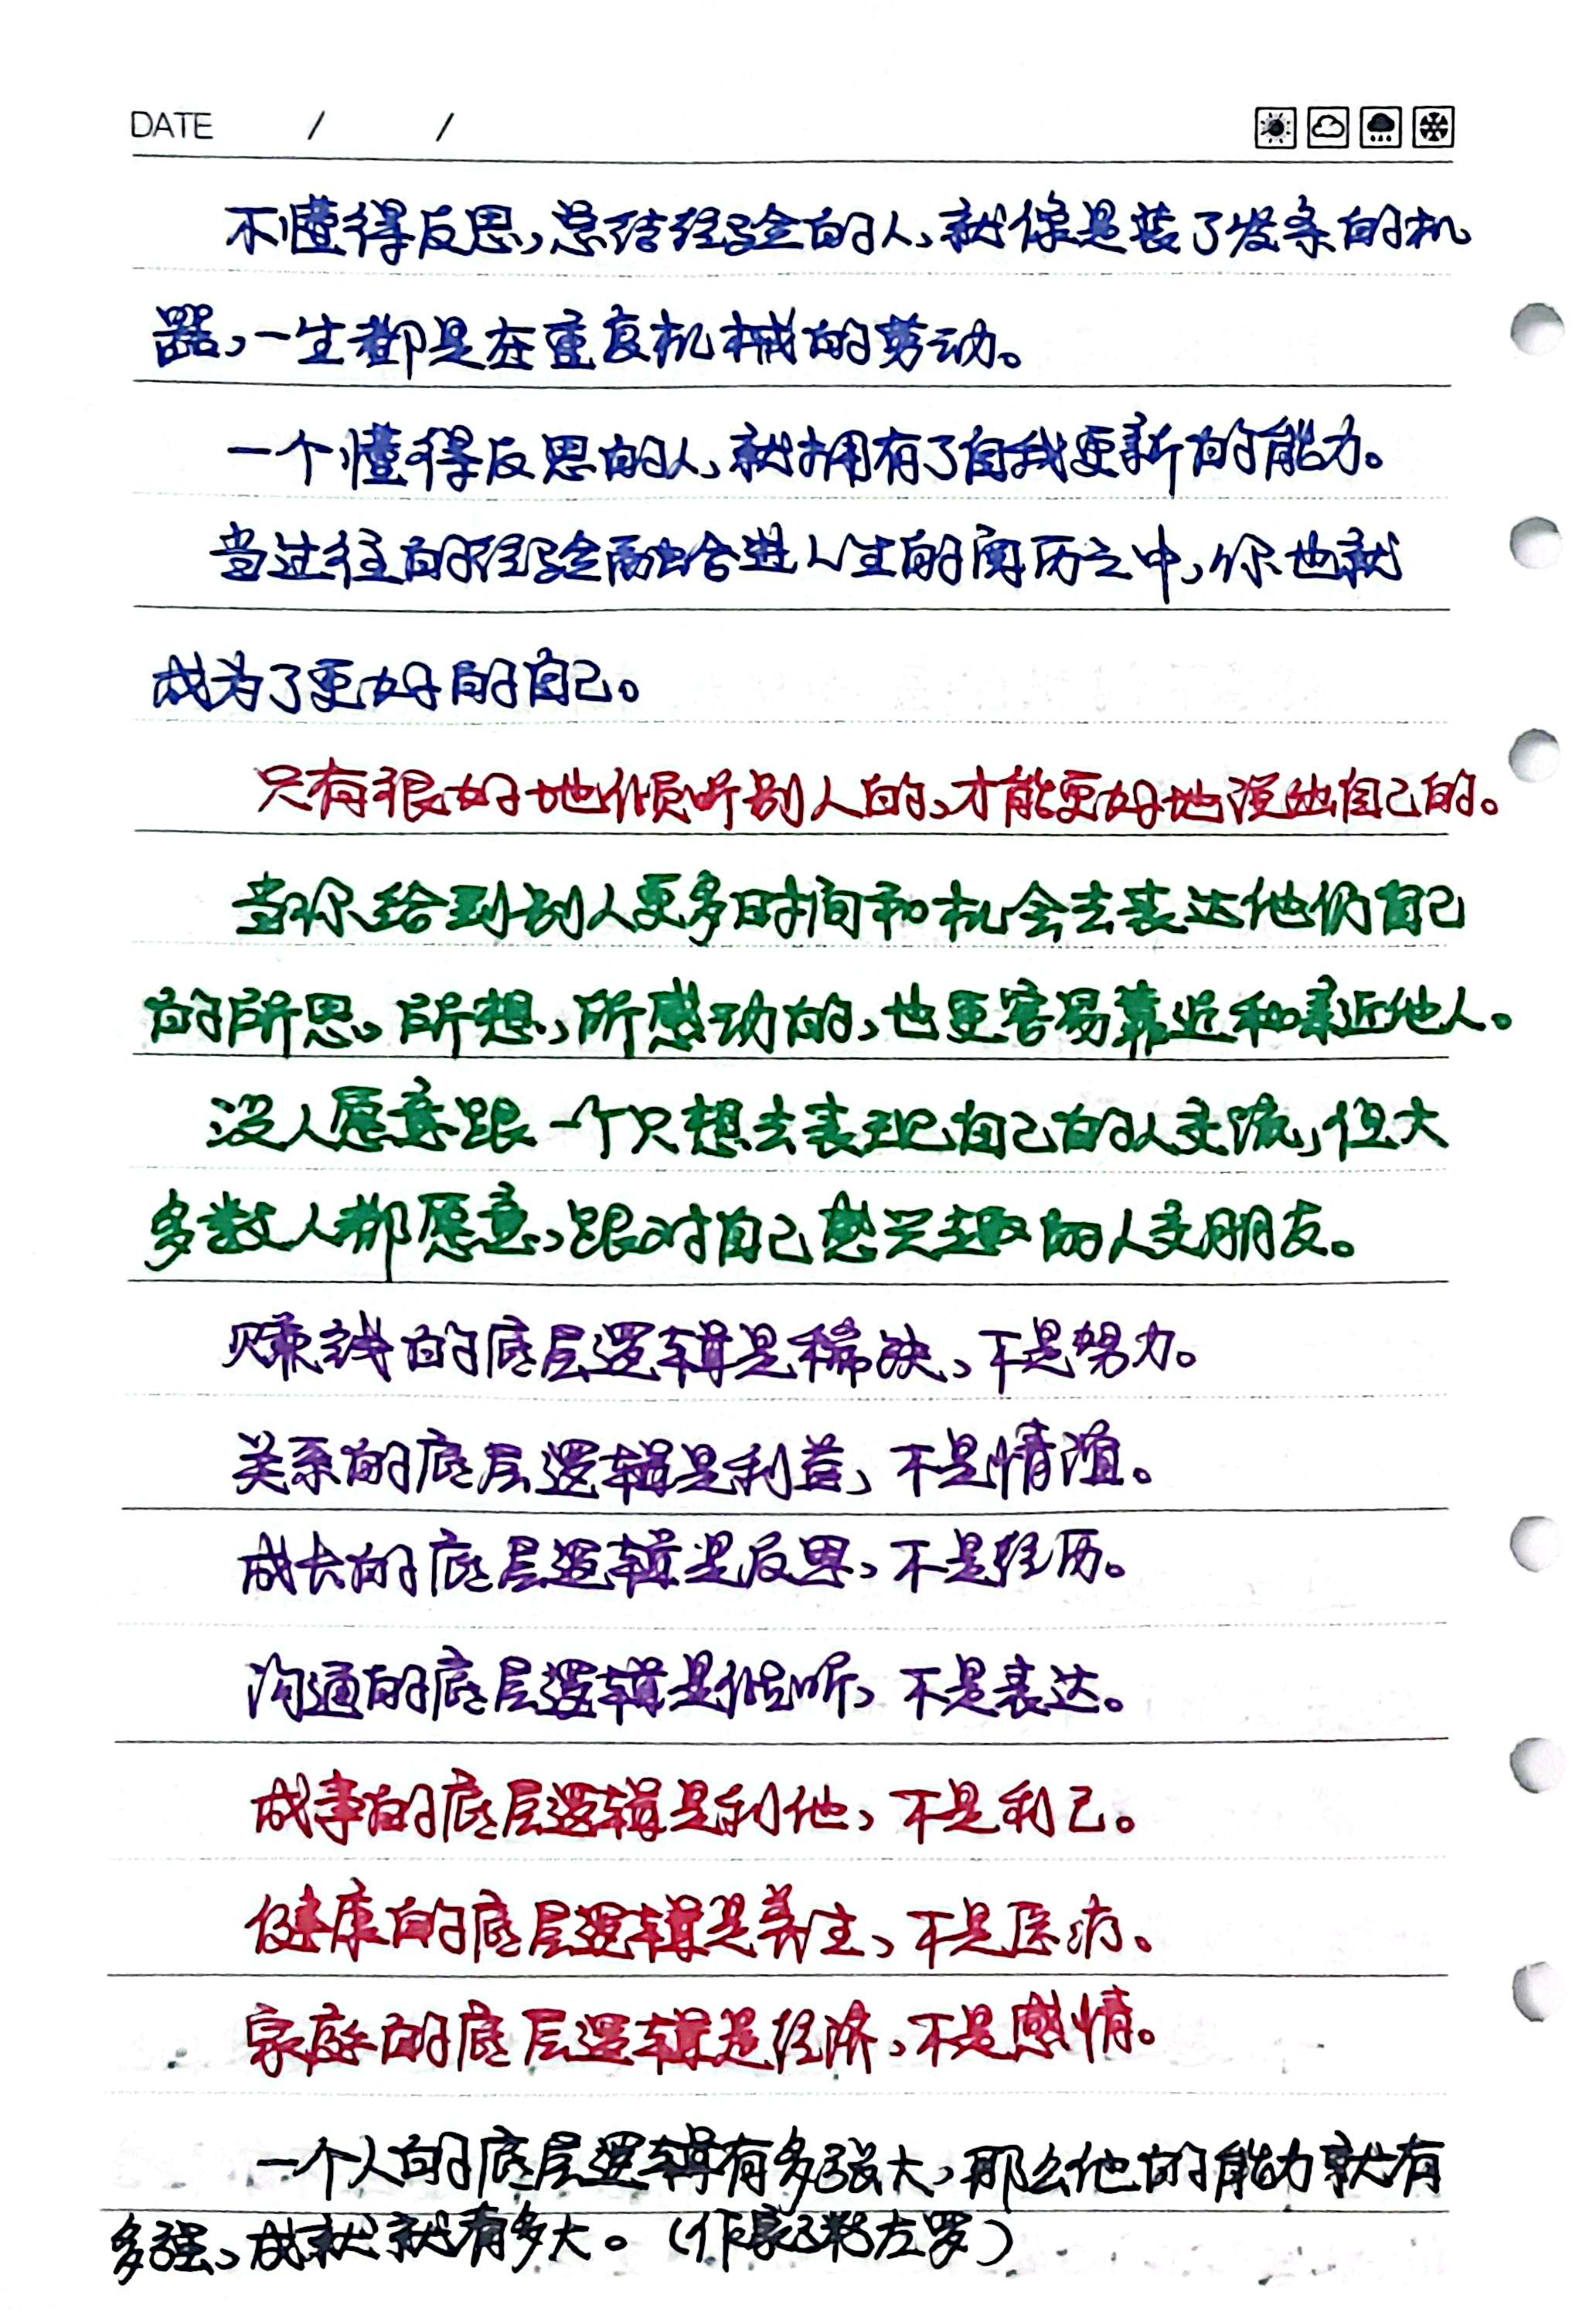 DATE / /
不懂得反思，总结经验的人，就像是装了发条的机
器，一生都是在重复机械的劳动。
一个懂得反思的人，就拥有了自我更新的能力。
当过往的经验融合进人生的阅历之中，你也就
成为了更好的自己。
只有很好地倾听别人的，才能更好地说出自己的。
当你给到别人更多时间和机会去表达他们自己
的所思，所想，所感动的，也更容易靠近和亲近他人。
没人愿意跟一个只想去表现自己的人交流，但大
多数人都愿意，跟对自己感兴趣的人交朋友。
赚钱的底层逻辑是稀缺，不是努力。
关系的底层逻辑是利益，不是情谊。
成长的底层逻辑是反思，不是经历。
沟通的底层逻辑是倾听，不是表达。
成事的底层逻辑是利他，不是利己。
健康的底层逻辑是养生，不是医疗。
家庭的底层逻辑是经济，不是感情。
一个人的底层逻辑有多强大，那么他的能力就有
多强，成就就有多大。（作家粥左罗）